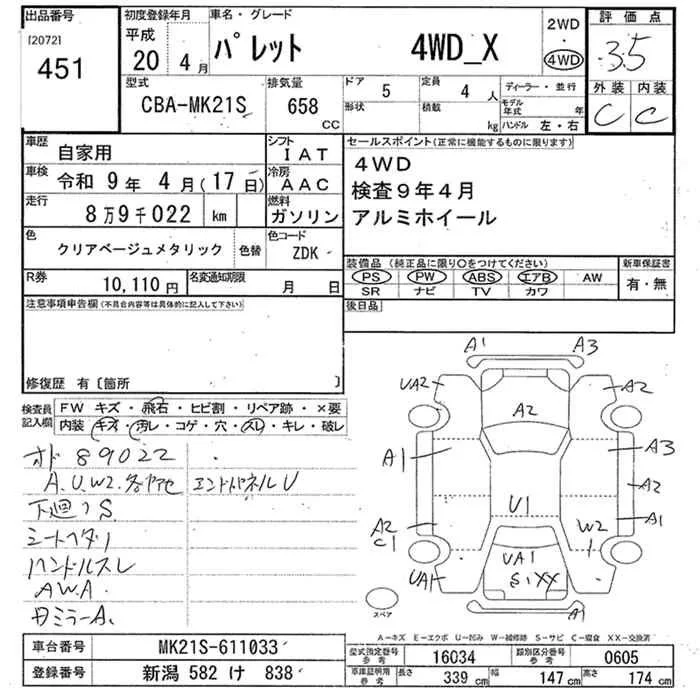 出品番号
[2072]
451
初度登録年月
平成
20 4月
車名・グレード
パレット 4WD_X
2WD
・
4WD
評価点
3.5
外装 内装
C C
型式
CBA-MK21S
排気量
658
CC
ドア
5
形状
定員
4 人
積載
kg
ディーラー・並行
モデル年式 年
ハンドル 左・右
車歴
自家用
シフト
IAT
車検
令和 9年 4月(17日)
冷房
AAC
走行
8万9千022 km
燃料
ガソリン
色
クリアベージュメタリック
色替
色コード
ZDK
R券
10,110円
名変通知期限
月 日
セールスポイント(正常に機能するものに限ります)
4WD
検査9年4月
アルミホイール
装備品(純正品に限り○をつけてください)
PS PW ABS エアB AW
SR ナビ TV カワ
新車保証書
有・無
後日品
注意事項申告欄(不具合内容等は具体的に記入して下さい)
修復歴 有〔箇所 〕
検査員記入欄
FW キズ・飛石・ヒビ割・リペア跡・×要
内装 キズ・汚レ・コゲ・穴・スレ・キレ・破レ
オド 89022
A.U.W2.各ヤセ エンドパネルU
下廻りS
シートヘタリ
ハンドルスレ
AWA
日ミラーA.
A1 A3
UA2 A2
A2
A1 A3
A2
A1
U1
A2
C1
W2
UA1
UA1
S1XX
A1
スペア
A-キズ E-エクボ U-凹み W-補修跡 S-サビ C-腐食 XX-交換済
車台番号
MK21S-611033
登録番号
新潟 582 け 838
型式指定番号
参考
16034
類別区分番号
参考
0605
車庫証明用
参考
長さ
339 cm
幅
147 cm
高さ
174 cm